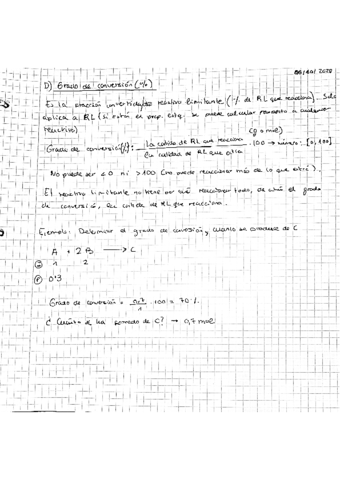 06/Mar/2020
D) Grado de conversión (%)
Es la fracción convertida del reactivo limitante (% de RL que reacciona). Solo
aplica a RL (si están en prop. esteq. se puede calcular respecto a cualquier
reactivo)
Grado de conversión (%): la cantidad de RL que reacciona (g o mol)
la cantidad de RL que había · 100 → número: [0, 100]
No puede ser < 0 ni > 100 (no puede reaccionar más de lo que entró).
El reactivo limitante no tiene por qué reaccionar todo, de ahí el grado
de conversión, la cantida de RL que reacciona.
Ejemplo: Determinar el grado de conversión y cuánto se produce de C
A + 2B → C
1 2
0'3
Grado de conversión = 0'7/1 · 100 = 70 %
¿ Cuánto se ha formado de C? → 0,7 mol